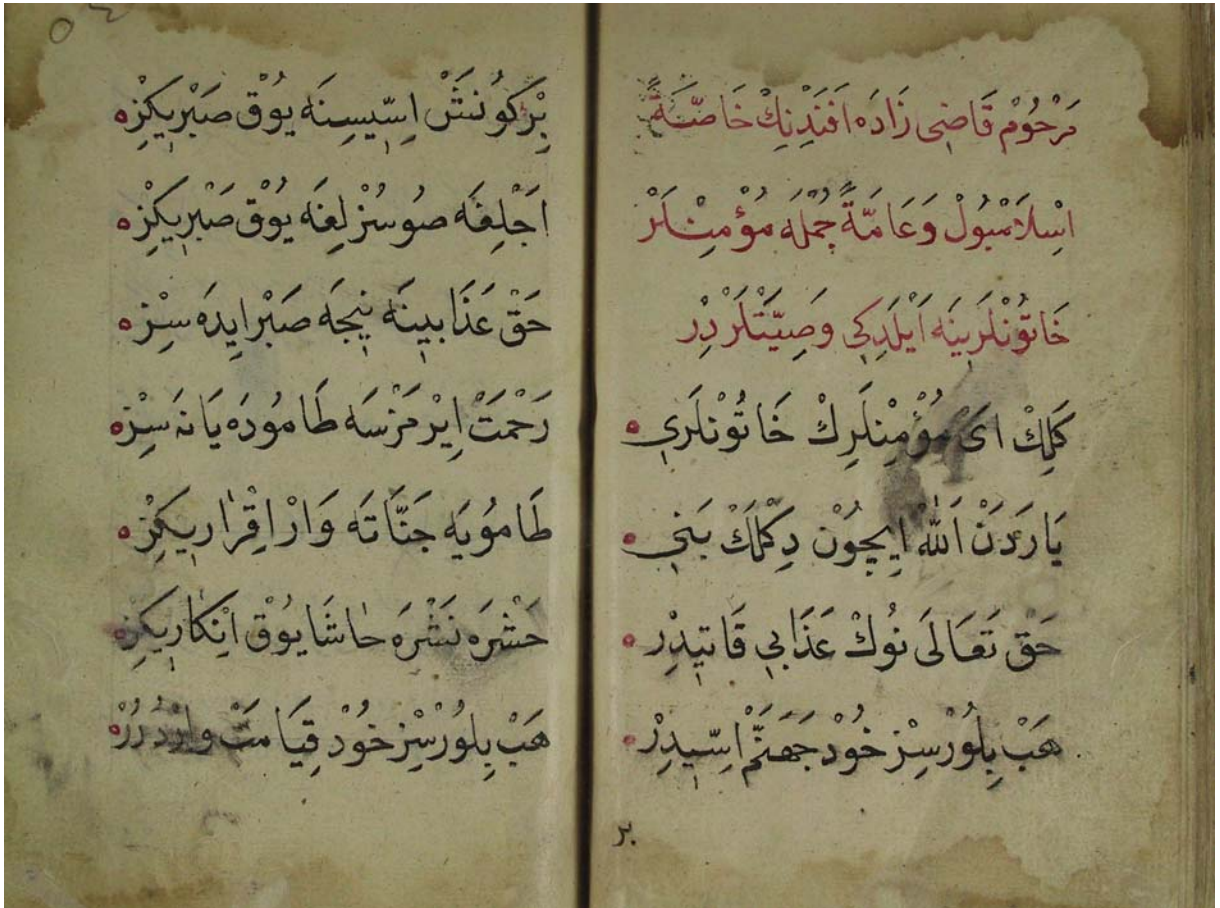 مَرْحُوْمْ قَاضِى زَادَه اَفَنْدِنِكْ خَاصَّةً
اِسْلَامْبُولْ وَعَامَّةً جُمْلَه مُؤْمِنْلَرْ
خَاتُونْلَرِينَه اَيْلَدِكِى وَصِيَّتْلَرْدِرْ
كَلِكْ اَىْ مُؤْمِنْلَرِكْ خَاتُونْلَرِى
يَارَدَنْ اَللّٰه اِيچُونْ دِكْلَكْ بَنِى
حَقْ تَعَالَى نُوكْ عَذَابِى قَاتِيدِرْ
هَبْ بِلُورْسِزْ خُودْ جَهَنَّمْ اِسِّيدِرْ
بر
بِرْ كُونَشْ اِسِّيسِنَه يُوقْ صَبْرِيكِزْ
اَجْلِغَه صُوسُزْلِغَه يُوقْ صَبْرِيكِزْ
حَقْ عَذَابِينَه نِيجَه صَبْر اِيدَه سِزْ
رَحْمَتْ اِيرْمَزْسَه طَامُودَه يَانَه سِزْ
طَامُويَه جَنَّاتَه وَارْ اِقْرَارِيكِزْ
حَشْرَه نَشْرَه حَاشَا يُوقْ اِنْكَارِيكِزْ
هَبْ بِلُورْسِزْ خُودْ قِيَامَتْ وَارْدُرُرْ